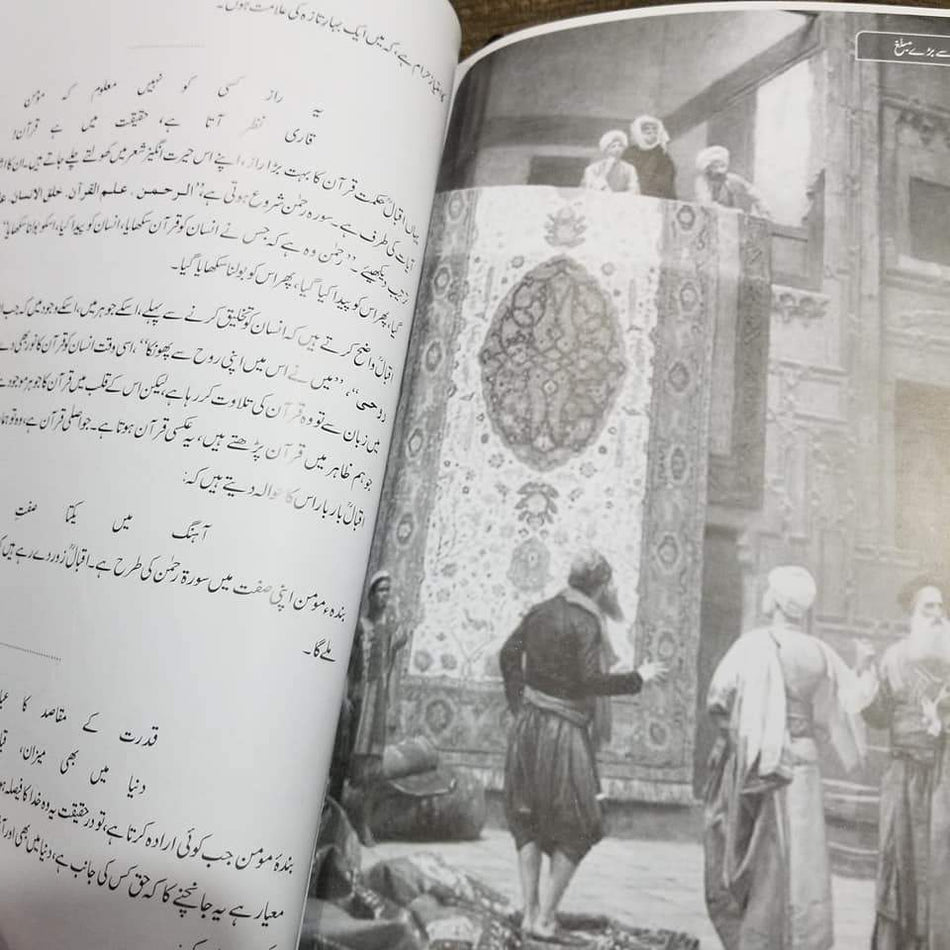 کا امتیاز حرام ہے، کہ میں ایک بہار تازہ کی علامت ہوں۔
یہ راز کسی کو نہیں معلوم کہ مومن
قاری نظر آتا ہے، حقیقت میں ہے قرآن!
یہاں اقبالؒ حکمت قرآن کا بہت بڑا راز، اپنے اس حیرت انگیز شعر میں کھولتے چلے جاتے ہیں۔ ان کا
آیات کی طرف ہے۔ سورہ رحمٰن شروع ہوتی ہے، ''الرحمن۔ علم القرآن۔ خلق الانسان۔
ترتیب دیکھئے۔ ''رحمٰن وہ ہے کہ جس نے انسان کو قرآن سکھایا، انسان کو پیدا کیا، اسکو بولنا سکھایا''
گیا، پھر اس کو پیدا کیا گیا، پھر اس کو بولنا سکھایا گیا۔
اقبالؒ واضح کرتے ہیں کہ انسان کو تخلیق کرنے سے پہلے، اسکے جوہر میں، اسکے وجود میں کہ جب
روحی''، ''میں نے اس میں اپنی روح سے پھونکا''، اسی وقت انسان کو قرآن کا نور بھی دے
میں زبان سے تو وہ قرآن کی تلاوت کر رہا ہے، لیکن اس کے قلب میں قرآن کا جوہر موجود ہے
جو ہم ظاہر میں قرآن پڑھتے ہیں، یہ عکسی قرآن ہوتا ہے۔ جو اصلی قرآن ہے، وہ تو ہمارے
اقبالؒ بار بار اس کا حوالہ دیتے ہیں کہ:
آہنگ میں یکتا صفتِ
بندہء مومن اپنی صفت میں سورۃ رحمٰن کی طرح ہے۔ اقبالؒ زور دے رہے ہیں
ملے گا۔
قدرت کے مقاصد کا
دنیا میں بھی میزان،
بندۂ مومن جب کوئی ارادہ کرتا ہے، تو درحقیقت یہ وہ خدا کا فیصلہ
معیار ہے یہ جانچنے کا کہ حق کس کی جانب ہے، دنیا میں بھی اور
سے بڑے مبلغ